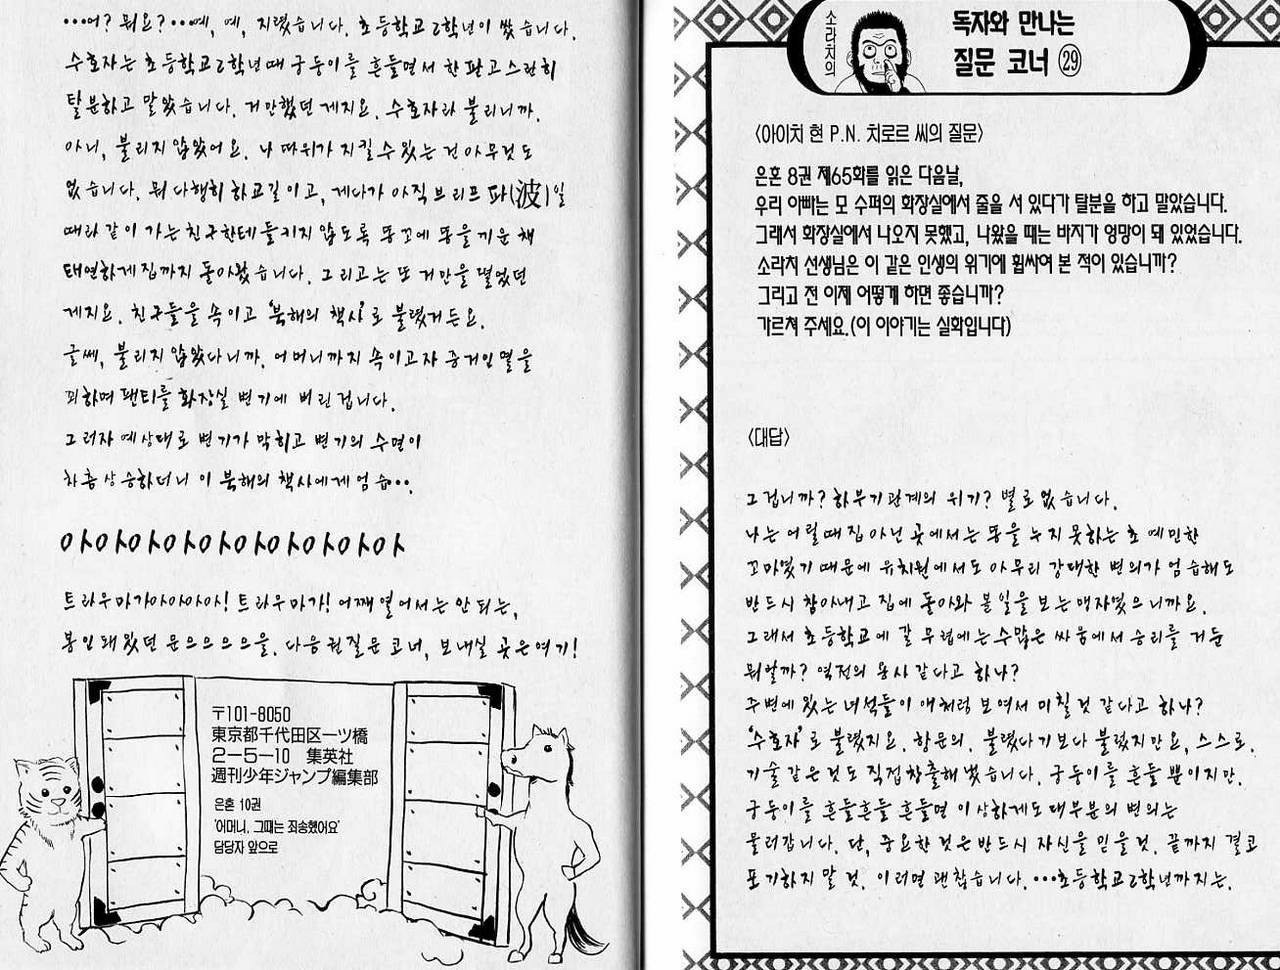 소라치의
독자와 만나는
질문 코너 ㉙
〈아이치 현 P.N. 치로르 씨의 질문〉
은혼 8권 제65화를 읽은 다음날,
우리 아빠는 모 수퍼의 화장실에서 줄을 서 있다가 탈분을 하고 말았습니다.
그래서 화장실에서 나오지 못했고, 나왔을 때는 바지가 엉망이 돼 있었습니다.
소라치 선생님은 이 같은 인생의 위기에 휩싸여 본 적이 있습니까?
그리고 전 이제 어떻게 하면 좋습니까?
가르쳐 주세요.(이 이야기는 실화입니다)
〈대답〉
그겁니까? 하부기관계의 위기? 별로 없습니다.
나는 어릴 때 집 아닌 곳에서는 똥을 누지 못하는 초 예민한
꼬마였기 때문에 유치원에서도 아무리 강대한 변의가 엄습해도
반드시 참아내고 집에 돌아와 볼일을 보는 맹자였으니까요.
그래서 초등학교에 갈 무렵에는 수많은 싸움에서 승리를 거둔
뭐랄까? 역전의 용사 같다고 하나?
주변에 있는 녀석들이 애처럼 보여서 미칠 것 같다고 하나?
'수호자'로 불렸지요. 항문의. 불렸다기보다 불렀지만요, 스스로.
기술 같은 것도 직접 창출해 냈습니다. 궁둥이를 흔들 뿐이지만.
궁둥이를 흔들흔들 흔들면 이상하게도 대부분의 변의는
물러갑니다. 단, 중요한 것은 반드시 자신을 믿을 것. 끝까지 결코
포기하지 말 것. 이러면 괜찮습니다.…초등학교 2학년까지는.
…어? 뭐요?…예, 예, 지렸습니다. 초등학교 2학년이 쌌습니다.
수호자는 초등학교 2학년 때 궁둥이를 흔들면서 한판 고스란히
탈분하고 말았습니다. 거만했던 게지요. 수호자라 불리니까.
아니, 불리지 않았어요. 나 따위가 지킬 수 있는 건 아무것도
없습니다. 뭐 다행히 하교길이고, 게다가 아직 브리프 파(波)일
때라 같이 가는 친구한테 들키지 않도록 똥꼬에 똥을 끼운 채
태연하게 집까지 돌아왔습니다. 그리고는 또 거만을 떨었던
게지요. 친구들을 속이고 '북해의 책사'로 불렸거든요.
글쎄, 불리지 않았다니까. 어머니까지 속이고자 증거인멸을
꾀하며 팬티를 화장실 변기에 버린 겁니다.
그러자 예상대로 변기가 막히고 변기의 수면이
차츰 상승하더니 이 북해의 책사에게 엄습…
아아아아아아아아아아
트라우마가아아아아! 트라우마가! 어째 열어서는 안 되는,
봉인돼 있었던 문으으으으을. 다음 권 질문 코너, 보내실 곳은 여기!
〒101-8050
東京都千代田区一ツ橋
2-5-10 集英社
週刊少年ジャンプ編集部
은혼 10권
'어머니, 그때는 죄송했어요'
담당자 앞으로